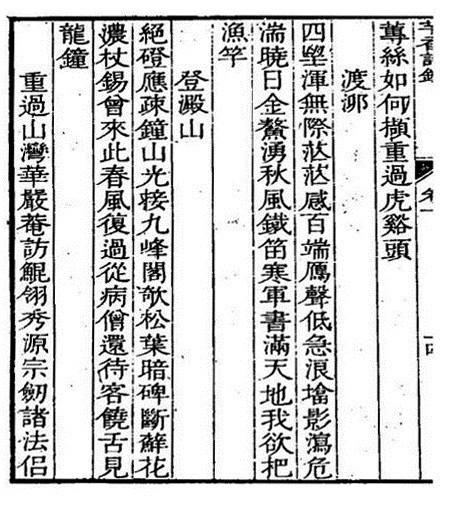 卷一
蓴絲如何擷重過虎谿頭
渡泖
四望渾無際茫茫感百端鴈聲低急浪塔影瀉危
湍曉日金鰲湧秋風鐵笛寒軍書滿天地我欲把
漁竿
登澱山
絕磴應疎鐘山光接九峰閣欹松葉暗碑斷蘚花
濃杖錫曾來此春風復過從病僧還待客饒舌見
龍鐘
重過山灣華嚴菴訪鯤翎秀源宗劒諸法侶